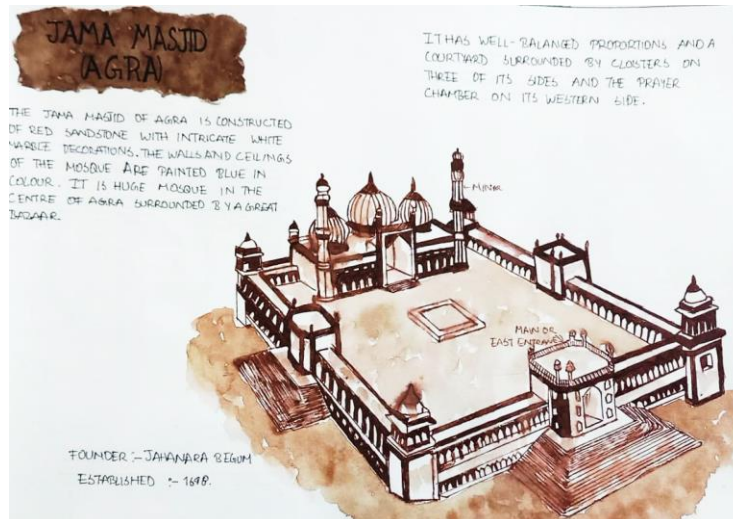 JAMA MASJID
(AGRA)
THE JAMA MASJID OF AGRA IS CONSTRUCTED
OF RED SANDSTONE WITH INTRICATE WHITE
MARBLE DECORATIONS. THE WALLS AND CEILINGS
OF THE MOSQUE ARE PAINTED BLUE IN
COLOUR. IT IS HUGE MOSQUE IN THE
CENTRE OF AGRA SURROUNDED BY A GREAT
BAZAAR.
IT HAS WELL-BALANCED PROPORTIONS AND A
COURTYARD SURROUNDED BY CLOISTERS ON
THREE OF ITS SIDES AND THE PRAYER
CHAMBER ON ITS WESTERN SIDE.
MINAR
MAIN OR
EAST ENTRANCE
FOUNDER :- JAHANARA BEGUM
ESTABLISHED :- 1648.